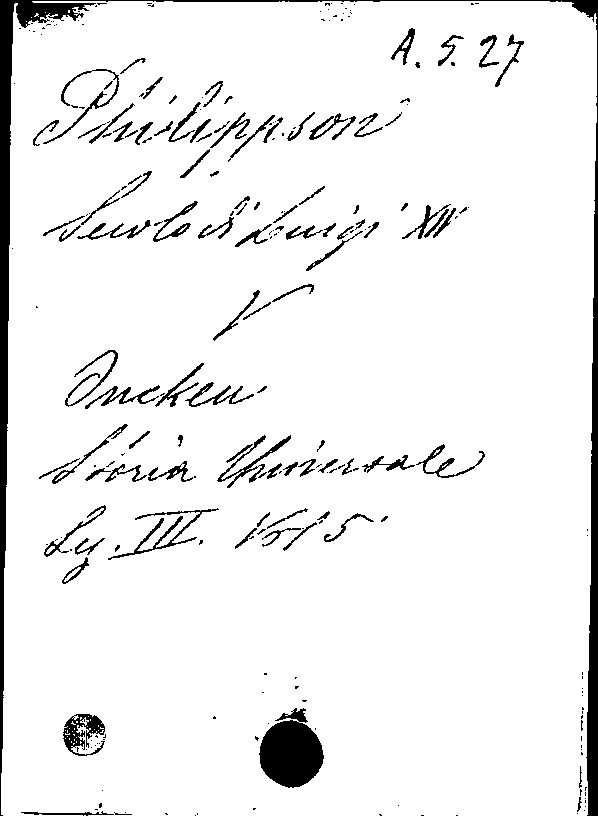 A. 5. 27
Philippson
Secolo di Luigi XIV
V
Oncken
Storia Universale
Sez. III. Vol 5